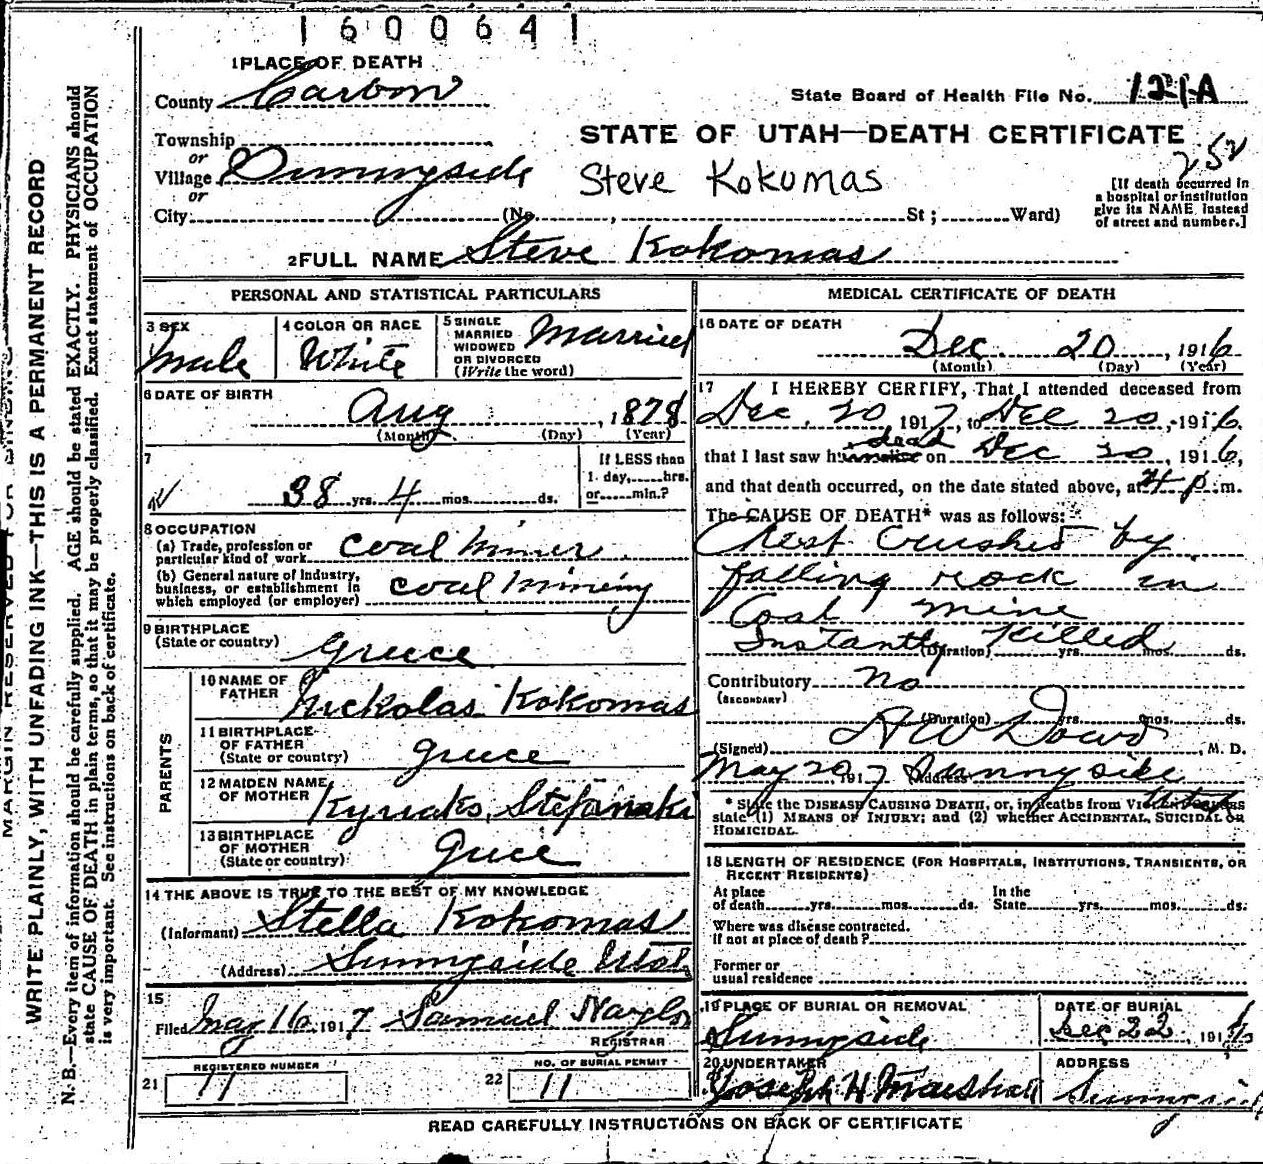 1600641
1 PLACE OF DEATH
County Carbon
State Board of Health File No. 121A
Township
or
Village Sunnyside
or
City (No , St ; Ward)
STATE OF UTAH—DEATH CERTIFICATE
252
Steve Kokumas
[If death occurred in
a hospital or institution
give its NAME instead
of street and number.]
2 FULL NAME Steve Kokomas
PERSONAL AND STATISTICAL PARTICULARS
3 SEX
Male
4 COLOR OR RACE
White
5 SINGLE
MARRIED
WIDOWED
OR DIVORCED
(Write the word)
Married
6 DATE OF BIRTH
Aug , 1878
(Month) (Day) (Year)
7
38 yrs. 4 mos. ds.
If LESS than
1 day, hrs.
or min.?
8 OCCUPATION
(a) Trade, profession or
particular kind of work coal miner
(b) General nature of Industry,
business, or establishment in
which employed (or employer) coal mining
9 BIRTHPLACE
(State or country) Greece
PARENTS
10 NAME OF
FATHER Nickolas Kokomas
11 BIRTHPLACE
OF FATHER
(State or country) Greece
12 MAIDEN NAME
OF MOTHER Kyriaks Stefanski
13 BIRTHPLACE
OF MOTHER
(State or country) Greece
14 THE ABOVE IS TRUE TO THE BEST OF MY KNOWLEDGE
(Informant) Stella Kokomas
(Address) Sunnyside Utah
15
Filed May 16, 1917 Samuel Naylor
REGISTRAR
21 REGISTERED NUMBER
11
22 NO. OF BURIAL PERMIT
11
MEDICAL CERTIFICATE OF DEATH
16 DATE OF DEATH
Dec. 20, 1916
(Month) (Day) (Year)
17 I HEREBY CERTIFY, That I attended deceased from
Dec. 20 1917, to Dec 20, 1916,
dead
that I last saw h on Dec 20, 1916,
and that death occurred, on the date stated above, at 4 p. m.
The CAUSE OF DEATH* was as follows:
Chest Crushed by
falling rock in
Coal mine
Instantly Killed
(Duration) yrs. mos. ds.
Contributory no
(SECONDARY)
(Duration) yrs. mos. ds.
(Signed) A W Dowd, M. D.
May 20, 1917 (Address) Sunnyside
Utah
* State the DISEASE CAUSING DEATH, or, in deaths from VIOLENT CAUSES
state (1) MEANS OF INJURY; and (2) whether ACCIDENTAL, SUICIDAL OR
HOMICIDAL.
18 LENGTH OF RESIDENCE (FOR HOSPITALS, INSTITUTIONS, TRANSIENTS, OR
RECENT RESIDENTS)
At place
of death yrs. mos. ds.
In the
State yrs. mos. ds.
Where was disease contracted.
If not at place of death?
Former or
usual residence
19 PLACE OF BURIAL OR REMOVAL
Sunnyside
DATE OF BURIAL
Dec 22, 1916
20 UNDERTAKER
Joseph H Marshall
ADDRESS
Sunnyside
READ CAREFULLY INSTRUCTIONS ON BACK OF CERTIFICATE
MARGIN RESERVED FOR BINDING
WRITE PLAINLY, WITH UNFADING INK—THIS IS A PERMANENT RECORD
N. B.—Every item of information should be carefully supplied. AGE should be stated EXACTLY. PHYSICIANS should
state CAUSE OF DEATH in plain terms, so that it may be properly classified. Exact statement of OCCUPATION
is very important. See instructions on back of certificate.